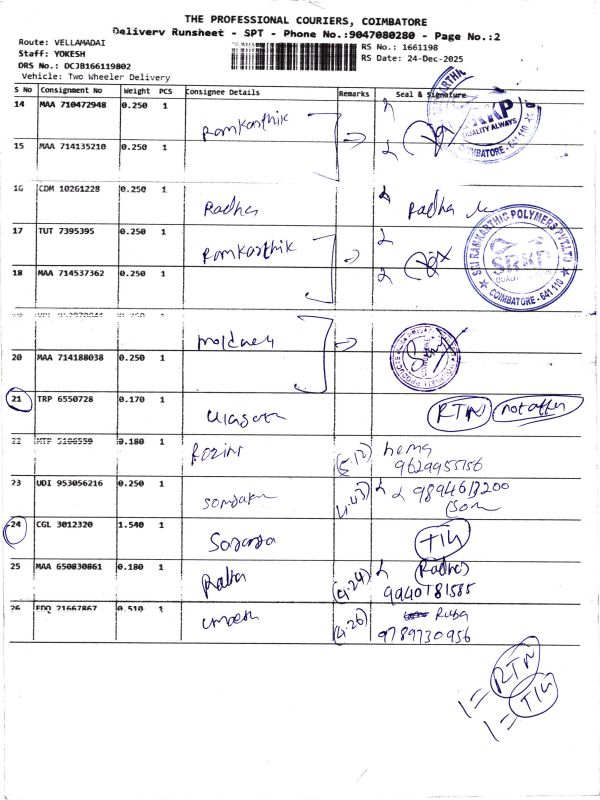 THE PROFESSIONAL COURIERS, COIMBATORE
Delivery Runsheet - SPT - Phone No.:9047080280 - Page No.:2
Route: VELLAMADAI
Staff: YOKESH
DRS No.: DCJB166119802
Vehicle: Two Wheeler Delivery
RS No.: 1661198
RS Date: 24-Dec-2025
S No Consignment No Weight PCS Consignee Details Remarks Seal & Signature
14 MAA 710472948 0.250 1
Ramkarthik
15 MAA 714135210 0.250 1
SRKP
QUALITY ALWAYS
COIMBATORE - 641 110
16 CDM 10261228 0.250 1
Radha Radha
17 TUT 7395395 0.250 1
Ramkarthik
18 MAA 714537362 0.250 1
SRI RAMKARTHIC POLYMERS PVT.LTD
SRKP
QUALITY
COIMBATORE - 641 110
20 MAA 714188038 0.250 1
21 TRP 6550728 0.170 1
RTN
22 MTP 5106559 0.180 1
(5.12) hema
9629955156
23 UDI 953056216 0.250 1
(4.43) 9894613200
24 CGL 3012320 1.540 1
25 MAA 650830861 0.180 1
(4.24) Radha
9940781585
26 EDQ 21667867 0.510 1
umaesh (4.26) Ruba
9789730956
1 = RTN